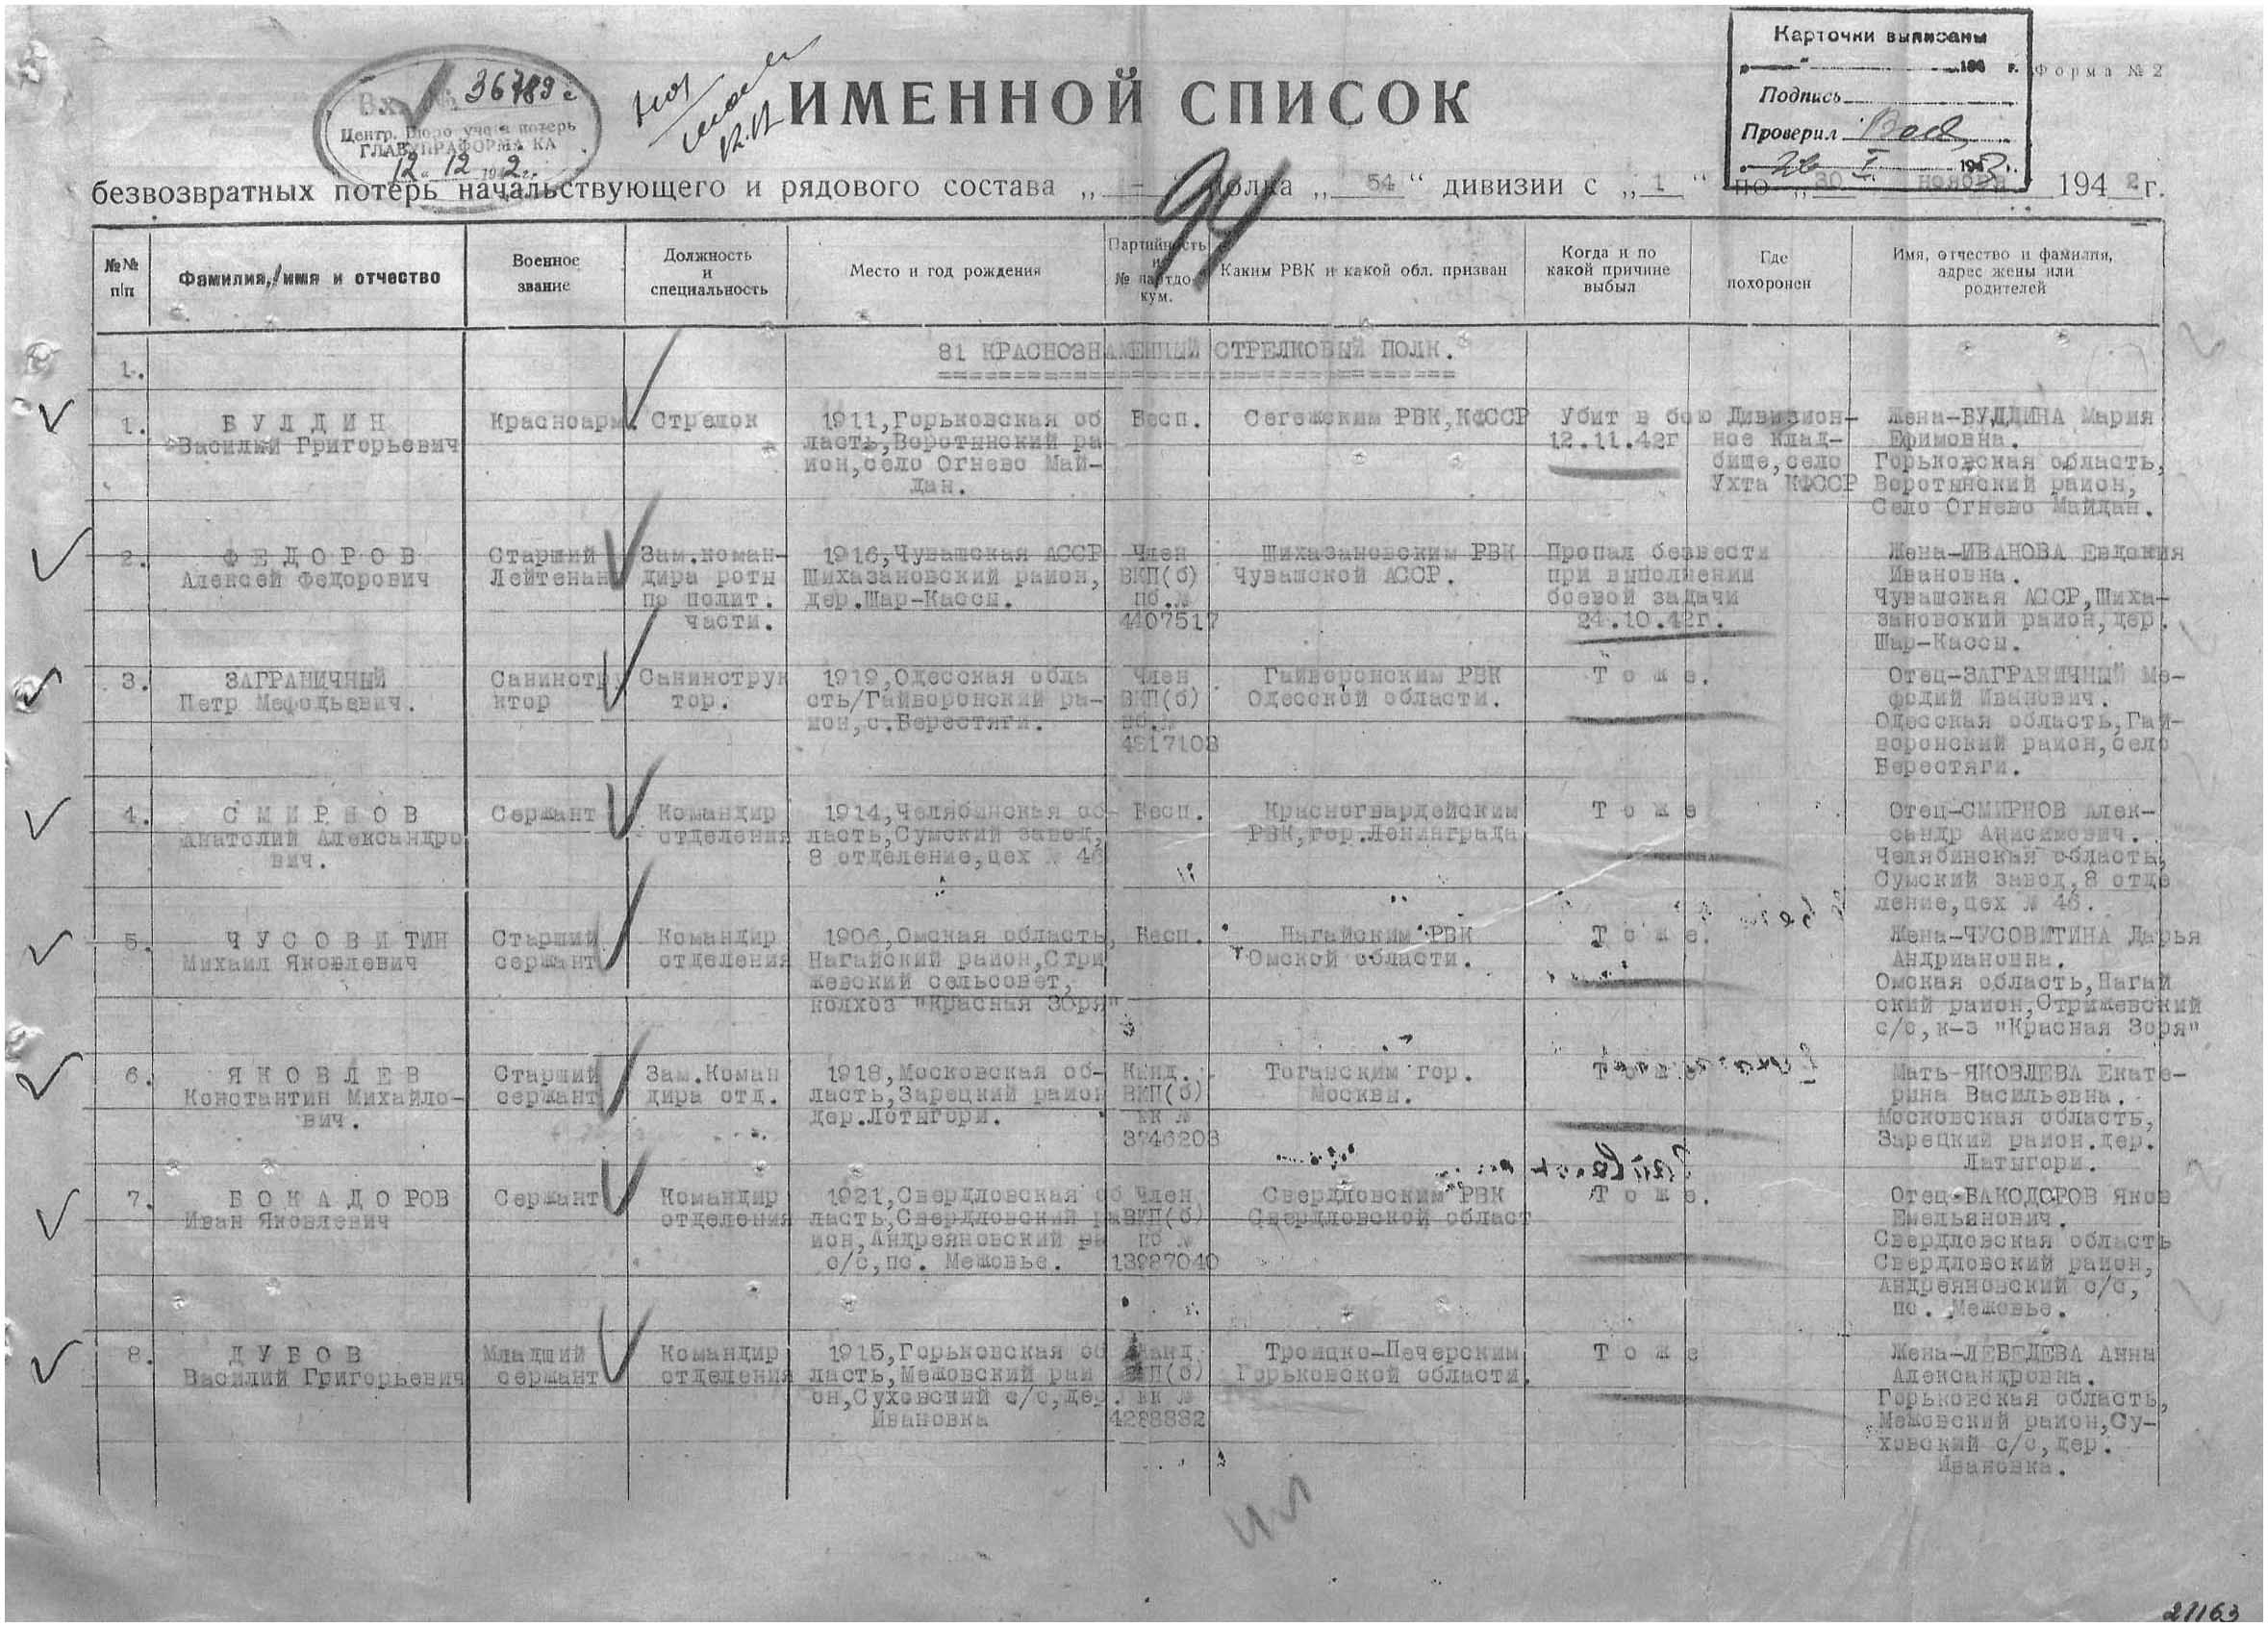 Карточки выписаны
194 г.
Форма № 2
Подпись
Проверил
26 I 1943
Вх. № 36789с
Центр. Бюро учета потерь
ГЛАВУПРАФОРМА КА
12 " 12 1942 г.
ИМЕННОЙ СПИСОК
94
безвозвратных потерь начальствующего и рядового состава „ — " полка „ 54 " дивизии с „ 1 " по „ 30 ноября 1942 г.
№№ п/п
Фамилия, имя и отчество
Военное звание
Должность и специальность
Место и год рождения
Партийность и № партдокум.
Каким РВК и какой обл. призван
Когда и по какой причине выбыл
Где похоронен
Имя, отчество и фамилия, адрес жены или родителей
1.
81 КРАСНОЗНАМЕННЫЙ СТРЕЛКОВЫЙ ПОЛК.
1. БУЛДИН Красноарм. Стрелок 1911,Горьковская об Бесп. Сегежским РВК,КФССР Убит в бою Дивизион- Жена-БУЛДИНА Мария
Василий Григорьевич ласть,Воротынский ра 12.11.42г ное клад- Ефимовна.
ион,село Огнево Май- бище,село Горьковская область,
дан. Ухта КФССР Воротынский район,
Село Огнево Майдан.
2. ФЕДОРОВ Старший Зам.коман- 1916,Чувашская АССР Член Шихазановским РВК Пропал безвести Жена-ИВАНОВА Евдокия
Алексей Федорович Лейтенан дира роты Шихазановский район, ВКП(б) Чувашской АССР. при выполнении Ивановна.
по полит. дер.Шар-Кассы. пб.№ боевой задачи Чувашская АССР,Шиха-
части. 4407517 24.10.42г. зановский район,дер.
Шар-Кассы.
3. ЗАГРАНИЧНЫЙ Санинстру Санинструк 1919,Одесская обла Член Гайворонским РВК Тоже. Отец-ЗАГРАНИЧНЫЙ Ме-
Петр Мефодьевич. ктор тор. сть/Гайворонский ра- ВКП(б) Одесской области. фодий Иванович.
ион,с.Берестяги. пб.№ Одесская область,Гай-
4817108 воронский район,село
Берестяги.
4. СМИРНОВ Сержант Командир 1914,Челябинская об- Бесп. Красногвардейским Тоже Отец-СМИРНОВ Алек-
Анатолий Александро отделения ласть,Сумский завод, РВК,гор.Ленинграда сандр Анисимович.
вич. 8 отделение,цех № 46 Челябинская область,
Сумский завод,8 отде
ление,цех № 46.
5. ЧУСОВИТИН Старший Командир 1906,Омская область, Бесп. Нагайским РВК Тоже. Жена-ЧУСОВИТИНА Дарья
Михаил Яковлевич сержант отделения Нагайский район,Стри Омской области. Андриановна.
жевский сельсовет, Омская область,Нагай
колхоз "Красная Зоря" ский район,Стрижевский
с/с,к-з "Красная Зоря"
6. ЯКОВЛЕВ Старший Зам.Коман 1918,Московская об- Канд. Тоганским гор. Тоже Мать-ЯКОВЛЕВА Екате-
Константин Михайло- сержант дира отд. ласть,Зарецкий район ВКП(б) Москвы. рина Васильевна.
вич. дер.Лотыгори. кк № Московская область,
3746203 Зарецкий район.дер.
Латыгори.
7. БОКАДОРОВ Сержант Командир 1921,Свердловская об Член Свердловским РВК Тоже. Отец-БАКОДОРОВ Яков
Иван Яковлевич отделения ласть,Свердловский ра ВКП(б) Свердловской област Емельянович.
ион,Андреяновский пб № Свердловская область
с/с,пс. Межовье. 13987040 Свердловский район,
Андреяновский с/с,
пс. Межовье.
8. ДУБОВ Младший Командир 1915,Горьковская об Канд Троицко-Печерским Тоже Жена-ЛЕБЕДЕВА Анна
Василий Григорьевич сержант отделения ласть,Межовский рай ВКП(б) Горьковской области. Александровна.
он,Суховский с/с,дер. кк № Горьковская область,
Ивановка 4288882 Межовский район,Су-
ховский с/с,дер.
Ивановка.
21163